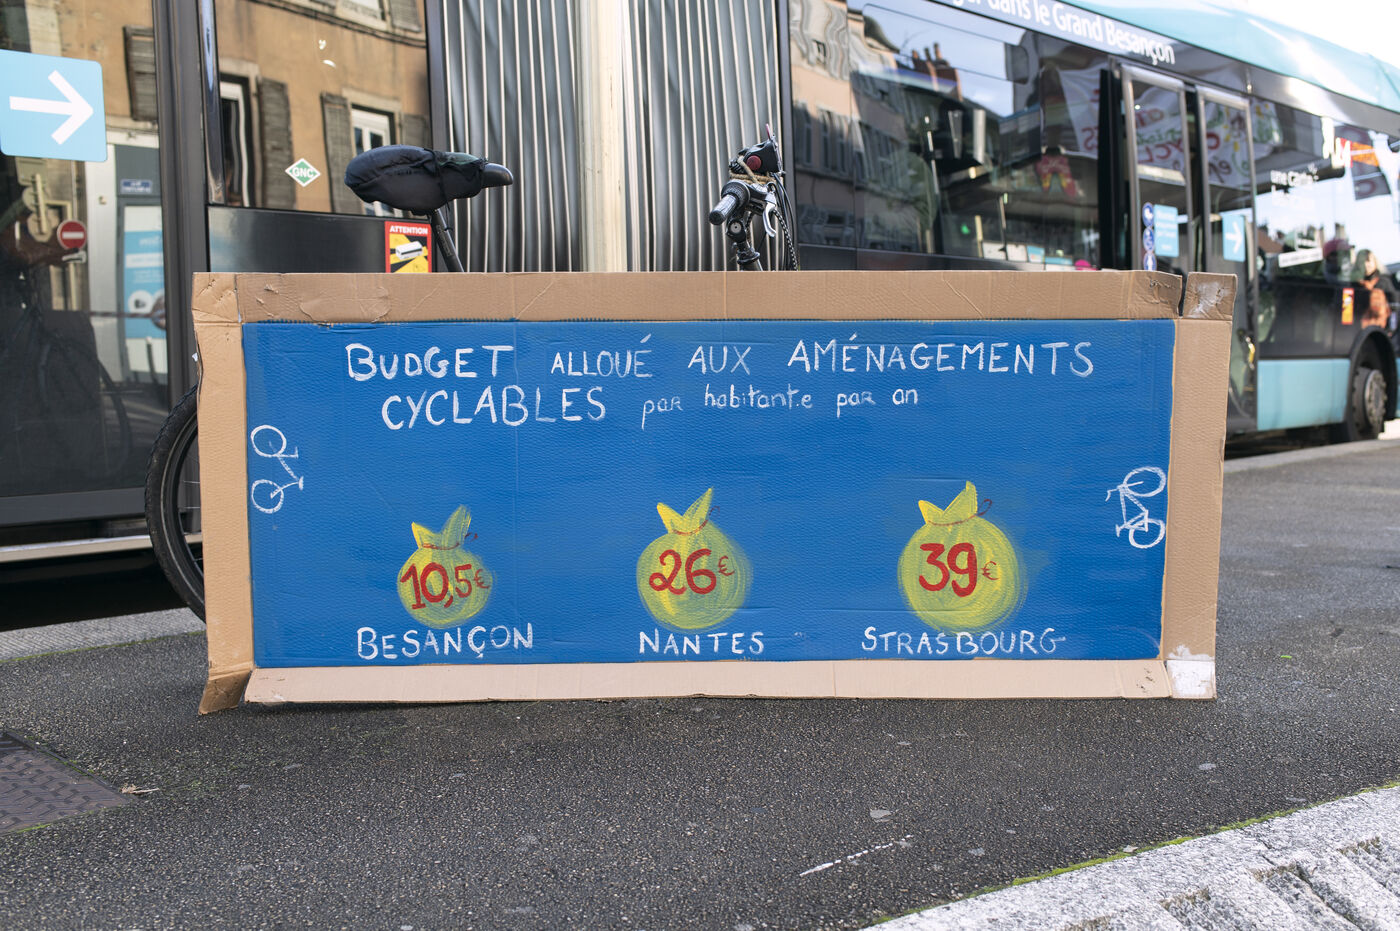 ger dans le Grand Besançon
GNC
ATTENTION
BUDGET ALLOUÉ AUX AMÉNAGEMENTS
CYCLABLES par habitant.e par an
10,5€
26€
39€
BESANÇON
NANTES
STRASBOURG